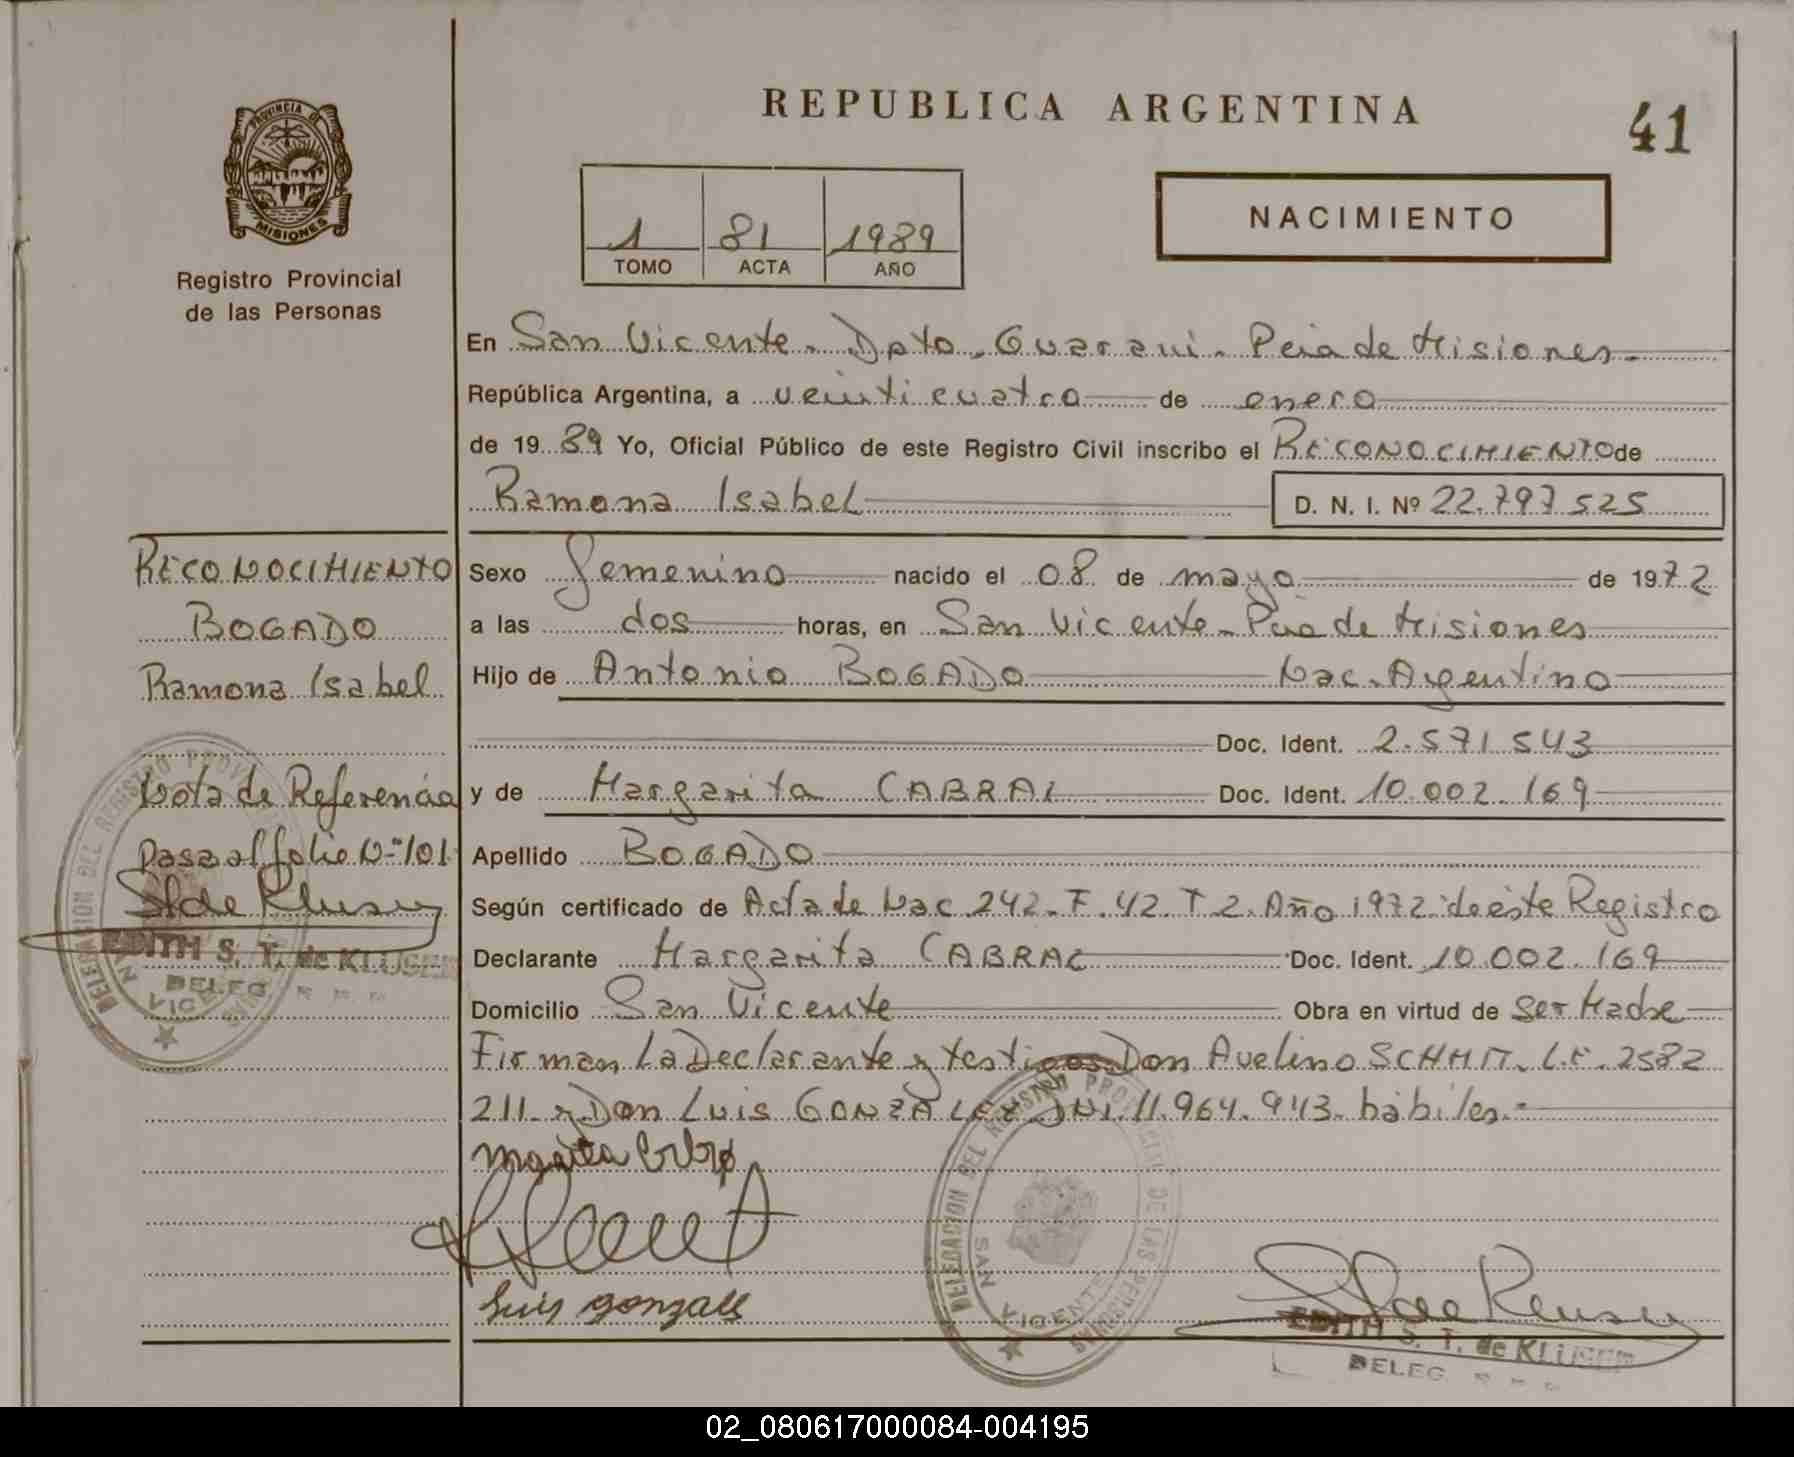 REPUBLICA ARGENTINA
41
PROVINCIA DE
MISIONES
Registro Provincial
de las Personas
1 81 1989
TOMO ACTA AÑO
NACIMIENTO
En San Vicente. Dpto. Guarani. Pcia de Misiones.
República Argentina, a veinticuatro de enero
de 19 89 Yo, Oficial Público de este Registro Civil inscribo el RECONOCIMIENTO de
Ramona Isabel D. N. I. Nº 22.797525
RECONOCIMIENTO
BOGADO
Ramona Isabel
Nota de Referencia
pasa al folio Nº 101
EDITH S. T. de KLUSER
DELEG.
Sexo Femenino nacido el 08 de mayo de 1972
a las dos horas, en San Vicente. Pcia de Misiones
Hijo de Antonio BOGADO Nac. Argentino
Doc. Ident. 2.571543
y de Margarita CABRAL Doc. Ident. 10.002.169
Apellido BOGADO
Según certificado de Acta de Nac 242. F. 42. T 2. Año 1972 de éste Registro
Declarante Margarita CABRAL Doc. Ident. 10.002.169
Domicilio San Vicente Obra en virtud de ser Madre
Firman La Declarante y testigos Don Avelino SCHMIT. L.E. 2582
211. y Don Luis GONZALEZ DNI. 11.964.943. hábiles.-
Luis gonzale
DELEGACION DEL REGISTRO PROVINCIAL DE LAS PERSONAS
SAN VICENTE
EDITH S. T. de KLUSER
DELEG.
02_080617000084-004195